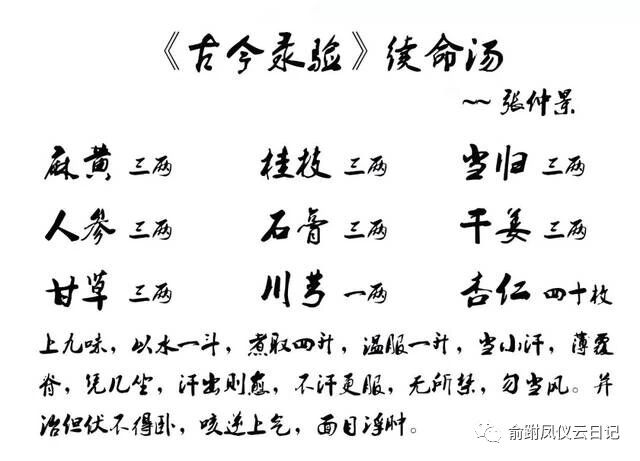 《古今录验》续命汤
~~张仲景
麻黄 三两 桂枝 三两 当归 三两
人参 三两 石膏 三两 干姜 三两
甘草 三两 川芎 一两 杏仁 四十枚
上九味，以水一斗，煮取四升，温服一升，当小汗，薄覆
脊，凭几坐，汗出则愈，不汗更服，无所禁，勿当风。并
治但伏不得卧，咳逆上气，面目浮肿。
俞跗凤仪云日记